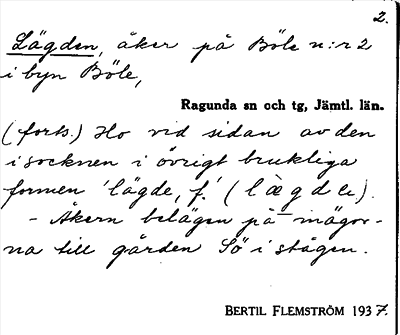 2.
Lägden, åker på Böle n:r 2
i byn Böle,
Ragunda sn och tg, Jämtl. län.
(forts.) Ho vid sidan av den
i socknen i övrigt brukliga
formen 'lägde, f.' (
— Åkern belägen på mägor-
na till gården Sö i stägen.
BERTIL FLEMSTRÖM 1937.